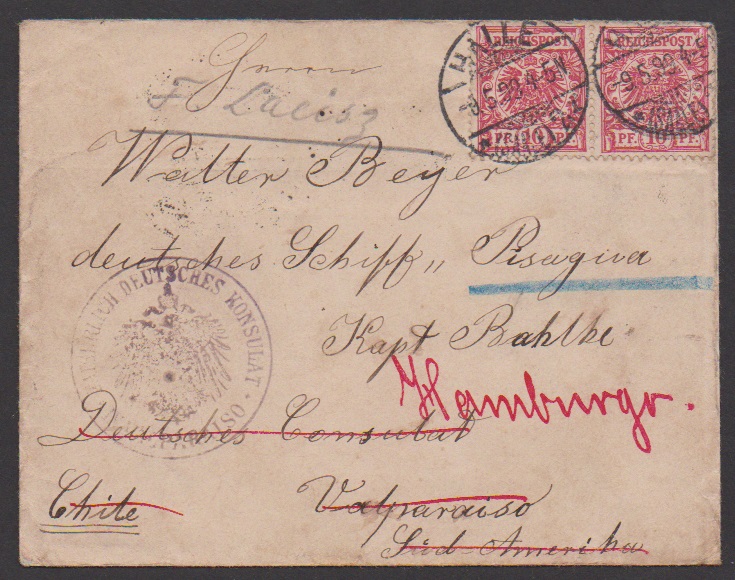 HALLE
9.5.99.4-5N
REICHSPOST
REICHSPOST
PF. 10 PF.
PF. 10 PF.
Herrn
F. Laeisz
Walter Beyer
deutsches Schiff „ Pisagua
Kapt Bahlke
Hamburgo.
KAISERLICH DEUTSCHES KONSULAT
VALPARAISO
Deutsches Consulat
Chile Valparaiso
Süd Amerika